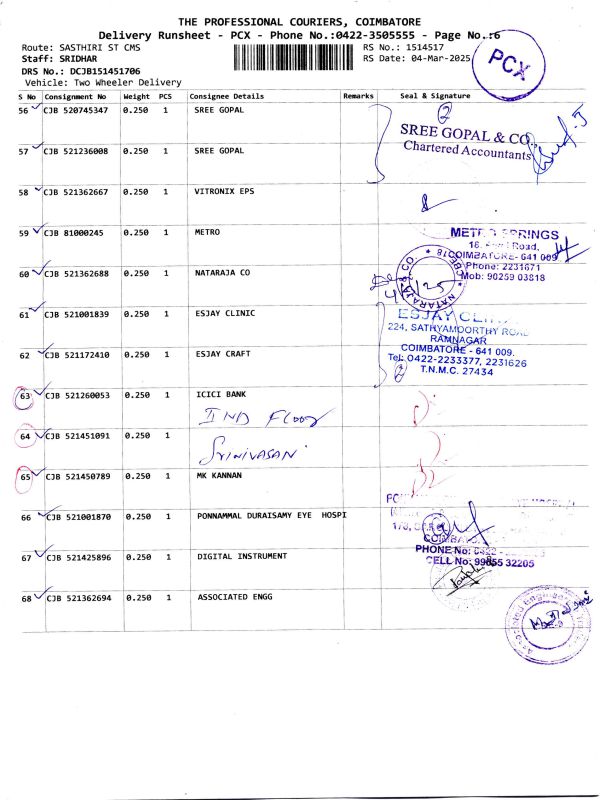 THE PROFESSIONAL COURIERS, COIMBATORE
Delivery Runsheet - PCX - Phone No.:0422-3505555 - Page No.:6
Route: SASTHIRI ST CMS
RS No.: 1514517
Staff: SRIDHAR
RS Date: 04-Mar-2025
PCX
DRS No.: DCJB151451706
Vehicle: Two Wheeler Delivery
S No Consignment No Weight PCS Consignee Details Remarks Seal & Signature
56 CJB 520745347 0.250 1 SREE GOPAL
2
SREE GOPAL & CO.,
Chartered Accountants
57 CJB 521236008 0.250 1 SREE GOPAL
58 CJB 521362667 0.250 1 VITRONIX EPS
59 CJB 81000245 0.250 1 METRO
METRO SPRINGS
Road,
COIMBATORE- 641 009
Phone: 2231671
Mob: 90259 03818
60 CJB 521362688 0.250 1 NATARAJA CO
NATARAJA & CO.
61 CJB 521001839 0.250 1 ESJAY CLINIC
ESJAY CLINIC
224, SATHYAMOORTHY ROAD
RAMNAGAR
COIMBATORE - 641 009.
Tel: 0422-2233377, 2231626
T.N.M.C. 27434
62 CJB 521172410 0.250 1 ESJAY CRAFT
2
63 CJB 521260053 0.250 1 ICICI BANK
IIND FLOOR
64 CJB 521451091 0.250 1
SRINIVASAN
65 CJB 521450789 0.250 1 MK KANNAN
66 CJB 521001870 0.250 1 PONNAMMAL DURAISAMY EYE HOSPI
PHONE No: 0422
CELL No: 99655 32205
67 CJB 521425896 0.250 1 DIGITAL INSTRUMENT
68 CJB 521362694 0.250 1 ASSOCIATED ENGG